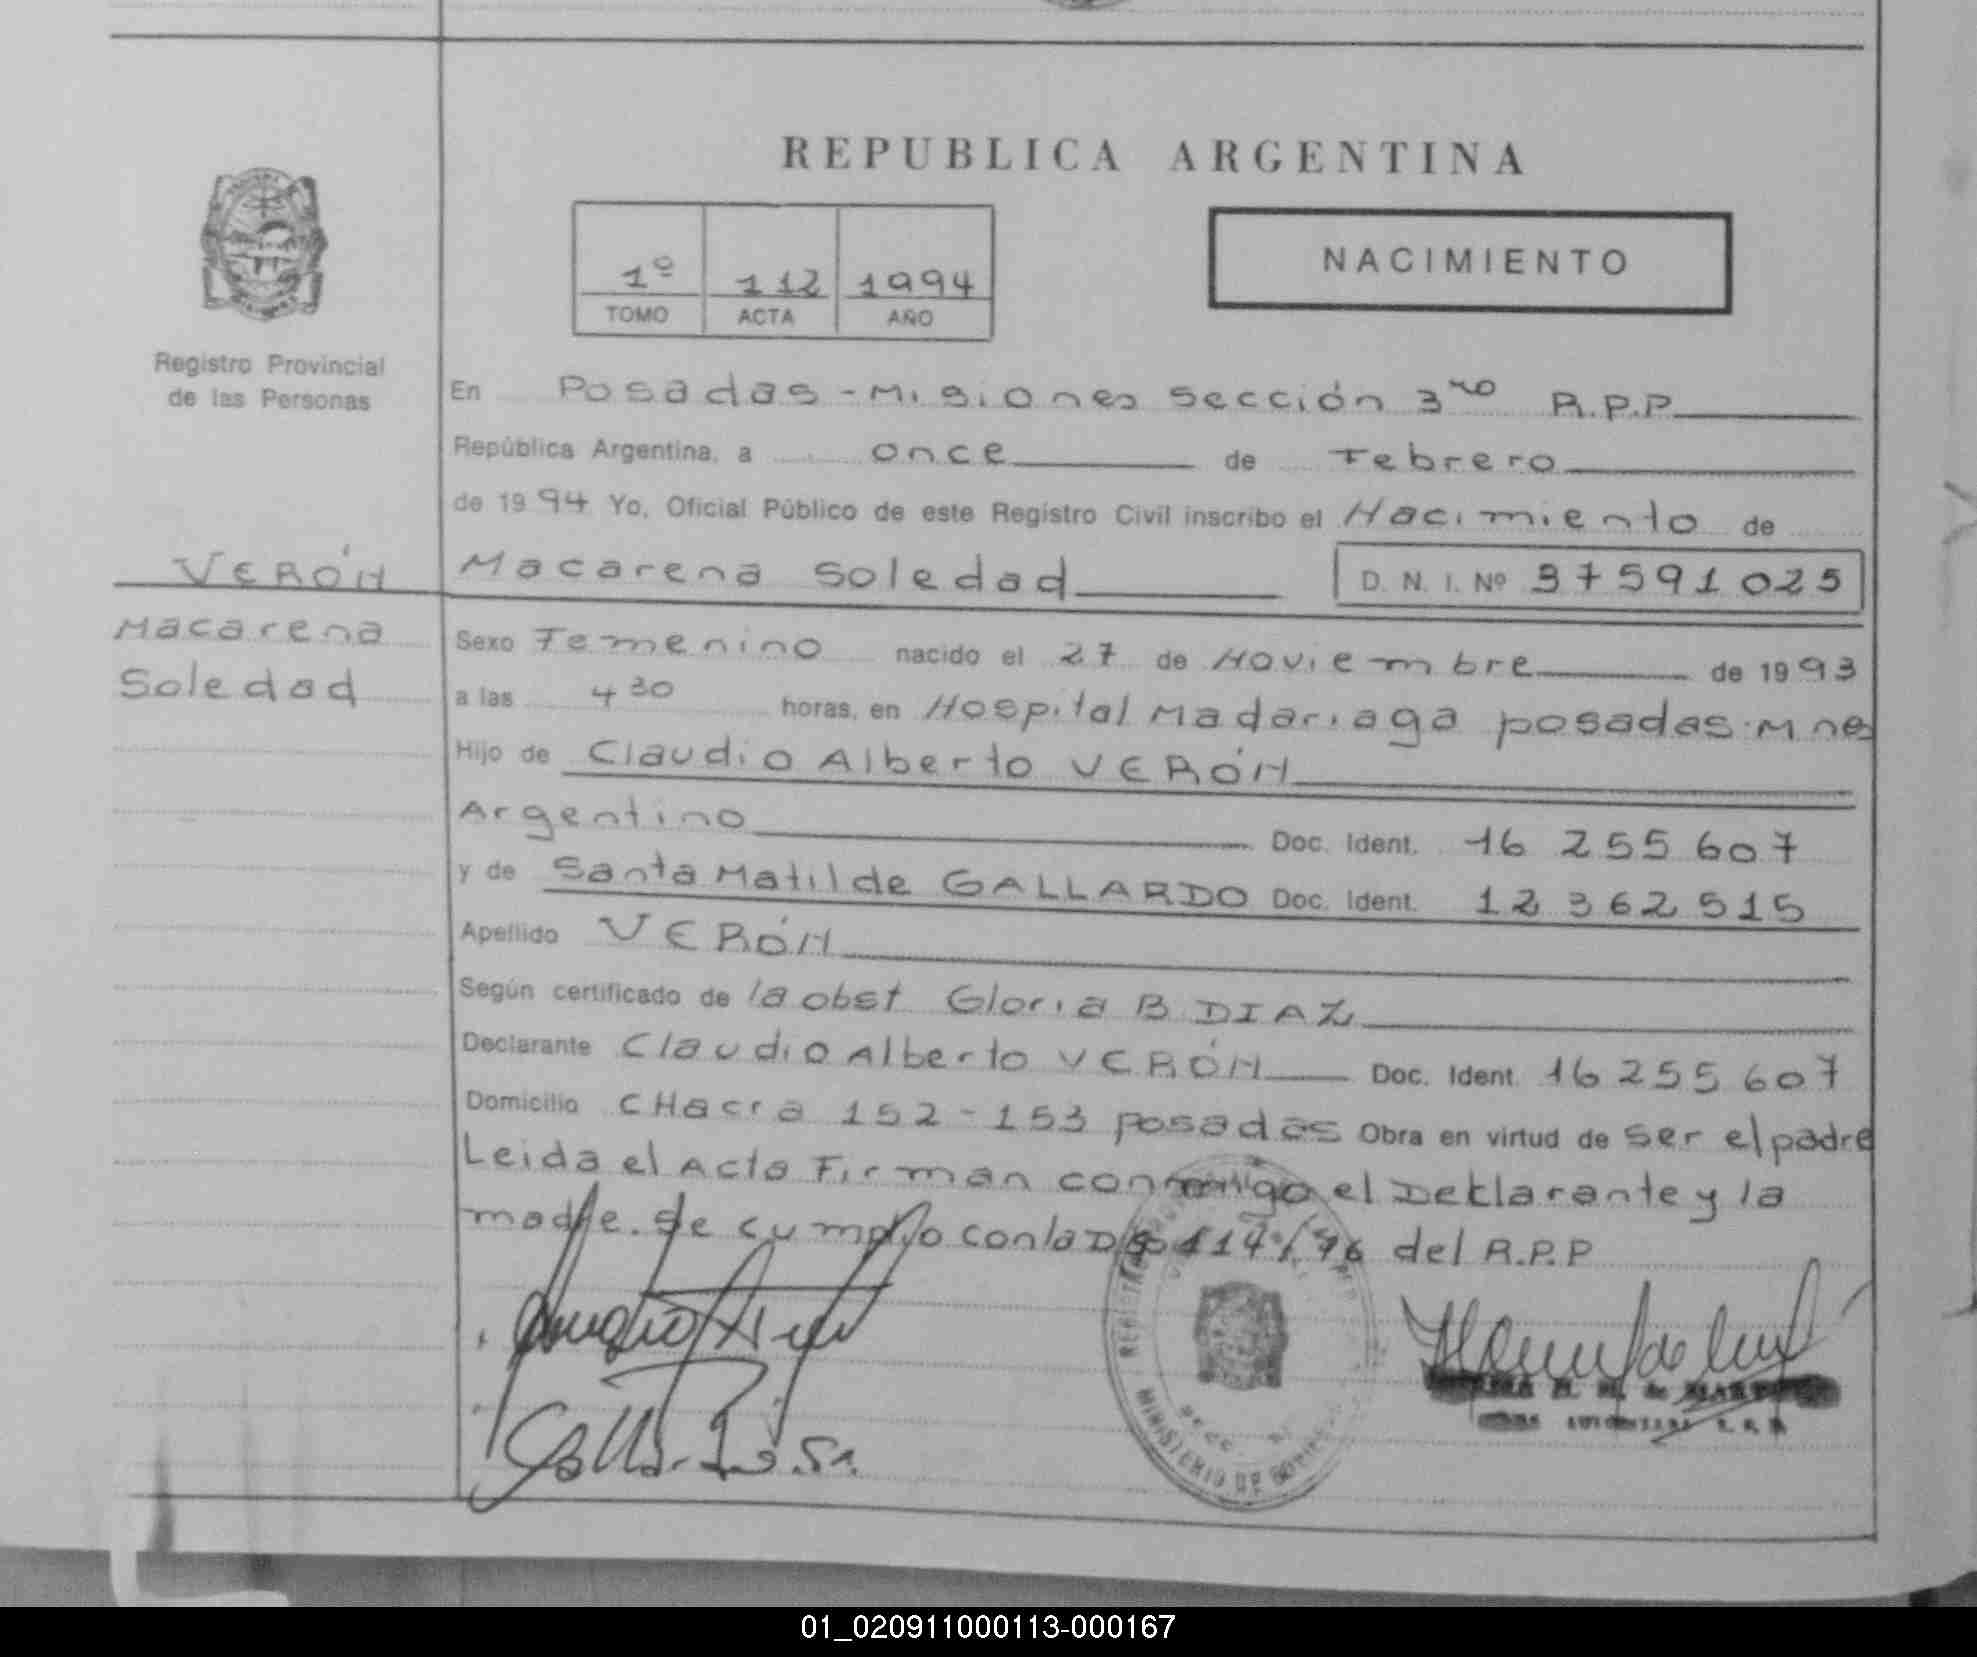 REPUBLICA ARGENTINA
1º 112 1994
TOMO ACTA AÑO
NACIMIENTO
Registro Provincial
de las Personas
VERÓN
Macarena
Soledad
En Posadas - Misiones Sección 3ro R.P.P
República Argentina, a once de Febrero
de 1994 Yo, Oficial Público de este Registro Civil inscribo el Nacimiento de
Macarena Soledad D. N. I. Nº 37591025
Sexo Femenino nacido el 27 de Noviembre de 1993
a las 4 30 horas, en Hospital Madariaga posadas.Mnes
Hijo de Claudio Alberto VERÓN
Argentino Doc. Ident. 16 255 607
y de Santa Matilde GALLARDO Doc. Ident. 12 362 515
Apellido VERÓN
Según certificado de la obst Gloria B DIAZ
Declarante Claudio Alberto VERÓN Doc. Ident. 16 255 607
Domicilio CHacra 152 - 153 posadas Obra en virtud de ser el padre
Leida el Acta Firman conmigo el Declarante y la
madre. Se cumplio con la 114/76 del R.P.P
MINISTERIO DE GOBIERNO
01_020911000113-000167